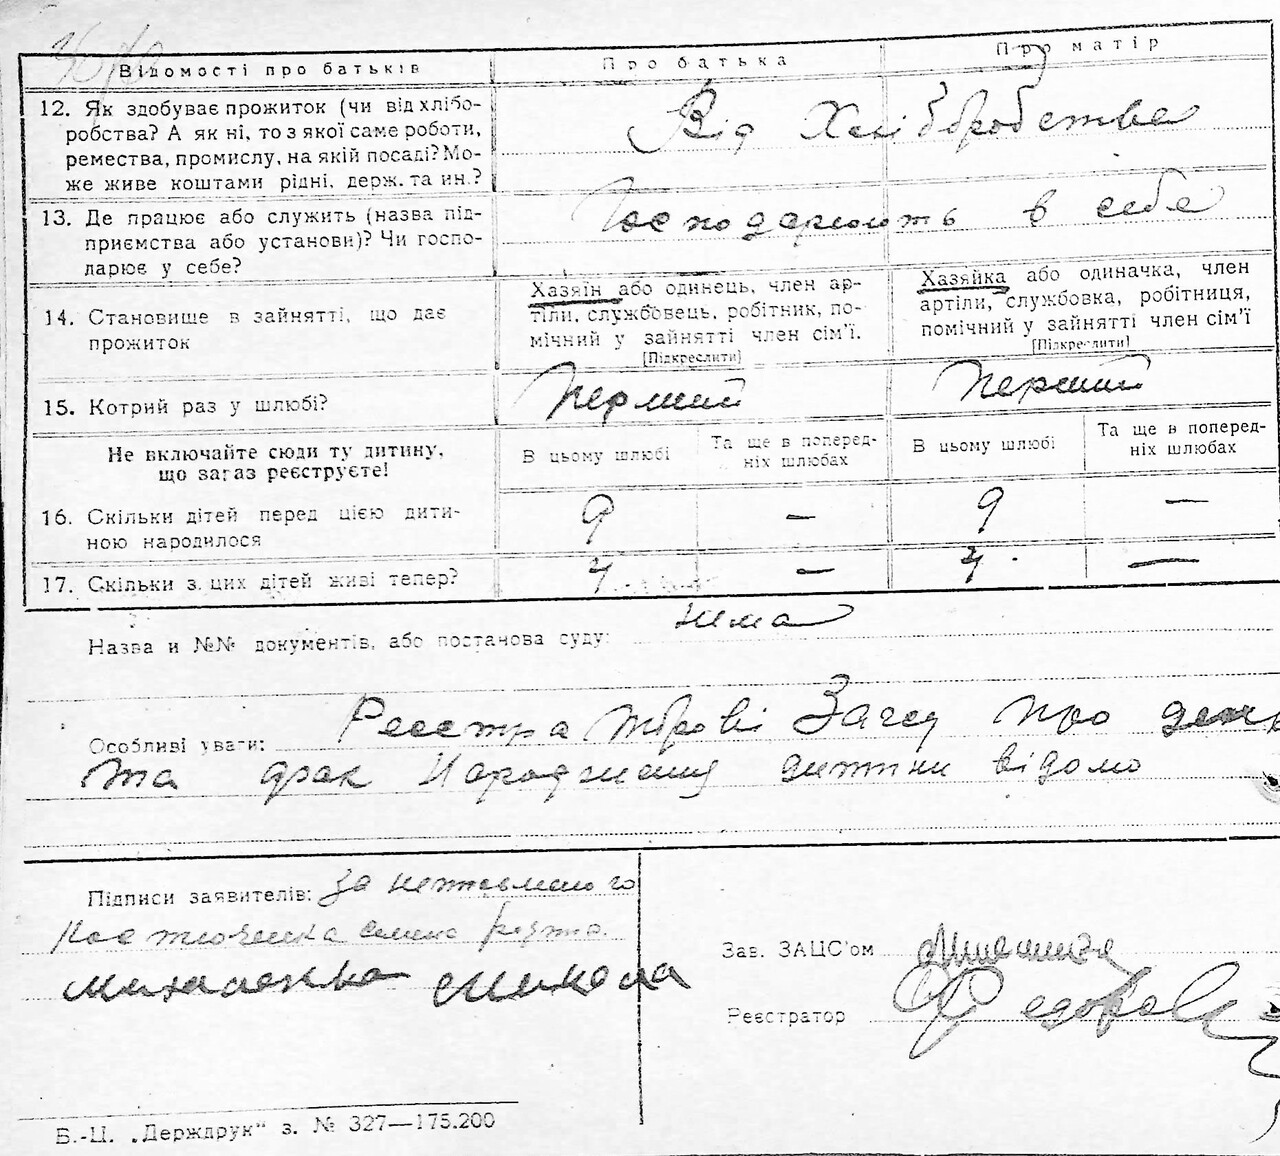 Відомості про батьків Про батька Про матір
12. Як здобуває прожиток (чи від хлібо-
робства? А як ні, то з якої саме роботи,
ремества, промислу, на якій посаді? Мо-
же живе коштами рідні, держ. та ин.?
Від Хлібробства
13. Де працює або служить (назва під-
приємства або установи)? Чи госпо-
дарює у себе?
Господарюють в себе
14. Становище в зайнятті, що дає
прожиток
Хазяїн або одинець, член ар-
тіли, службовець, робітник, по-
мічний у зайнятті член сім'ї.
[Підкреслити]
Хазяйка або одиначка, член
артіли, службовка, робітниця,
помічний у зайнятті член сім'ї
[Підкреслити]
15. Котрий раз у шлюбі? Перший Перший
Не включайте сюди ту дитину,
що зараз реєструєте!
В цьому шлюбі
Та ще в поперед-
ніх шлюбах
В цьому шлюбі
Та ще в поперед-
ніх шлюбах
16. Скільки дітей перед цією дити-
ною народилося
9 — 9 —
17. Скільки з цих дітей живі тепер? 4 — 4 —
Назва и №№ документів, або постанова суду: нима
Особливі уваги: Реєстраторові Загсу про день
та фак Народження дитини відомо
Підписи заявителів: За неписьменого
росписа.
Микола
Зав. ЗАЦС'ом
Реєстратор Федоров
Б.-Ц. „Держдрук" з. № 327—175.200